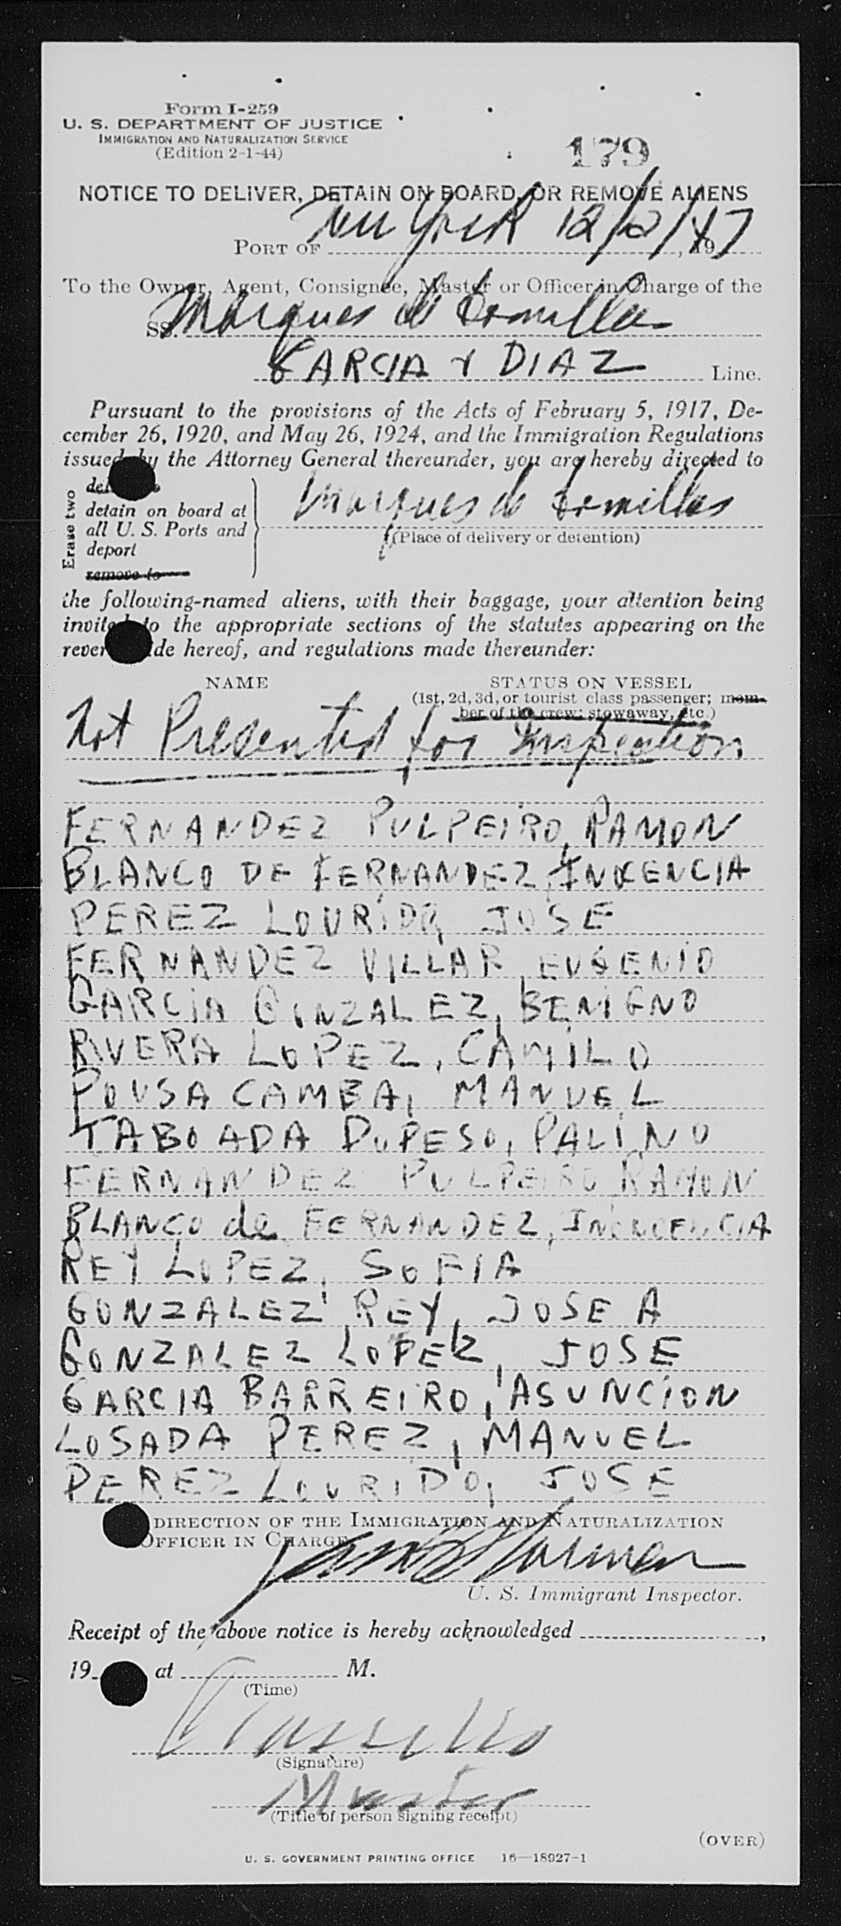 Form I-259
U. S. DEPARTMENT OF JUSTICE
IMMIGRATION AND NATURALIZATION SERVICE
(Edition 2-1-44)
179
NOTICE TO DELIVER, DETAIN ON BOARD, OR REMOVE ALIENS
PORT OF New York 12/2/, 1947
To the Owner, Agent, Consignee, Master or Officer in Charge of the
SS. Marques de Comillas
GARCIA Y DIAZ Line.
Pursuant to the provisions of the Acts of February 5, 1917, De-
cember 26, 1920, and May 26, 1924, and the Immigration Regulations
issued by the Attorney General thereunder, you are hereby directed to
Erase two
detain on board at
all U. S. Ports and
deport
remove to
Marques de Comillas
(Place of delivery or detention)
the following-named aliens, with their baggage, your attention being
invited to the appropriate sections of the statutes appearing on the
reverse side hereof, and regulations made thereunder:
NAME STATUS ON VESSEL
(1st, 2d, 3d, or tourist class passenger; mem-
ber of the crew; stowaway, etc.)
Not Presented for Inspection
FERNANDEZ PULPEIRO, RAMON
BLANCO DE FERNANDEZ, INOCENCIA
PEREZ LOURIDO, JOSE
FERNANDEZ VILLAR, EUGENIO
GARCIA GONZALEZ, BENIGNO
RIVERA LOPEZ, CAMILO
POUSA CAMBA, MANUEL
TABOADA DOPESO, PALINO
FERNANDEZ PULPEIRO RAMON
BLANCO de FERNANDEZ, INOCENCIA
REY LOPEZ, SOFIA
GONZALEZ REY, JOSE A
GONZALEZ LOPEZ, JOSE
GARCIA BARREIRO, ASUNCION
LOSADA PEREZ, MANUEL
PEREZ LOURIDO, JOSE
DIRECTION OF THE IMMIGRATION AND NATURALIZATION
OFFICER IN CHARGE
U. S. Immigrant Inspector.
Receipt of the above notice is hereby acknowledged ,
19 at M.
(Time)
(Signature)
Master
(Title of person signing receipt)
(OVER)
U. S. GOVERNMENT PRINTING OFFICE 16—18927-1